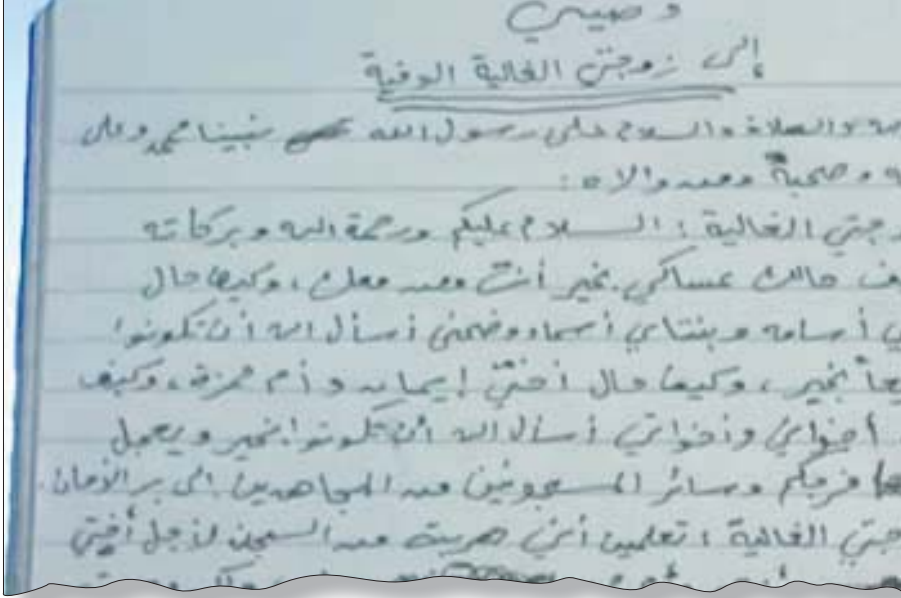 وصيتي
إلى زوجتي الغالية الوفية
والصلاة والسلام على رسول الله نبينا محمد وعلى
وصحبه ومن والاه :
جتي الغالية : السلام عليكم ورحمة الله وبركاته
ف حالك عساكي بخير أنتي ومن معك ، وكيف حال
ي أسامه وبنتاي أسماء وضحى أسأل الله أن تكونوا
عاً بخير ، وكيف حال أختي إيمان وأم حمزة ، وكيف
أخواي وأخواتي أسأل الله أن تكونوا بخير ويعجل
فرجكم وسائر المسجونين من المجاهدين إلى بر الأمان .
جتي الغالية : تعلمين أني هربت من السجن لأجل أختي